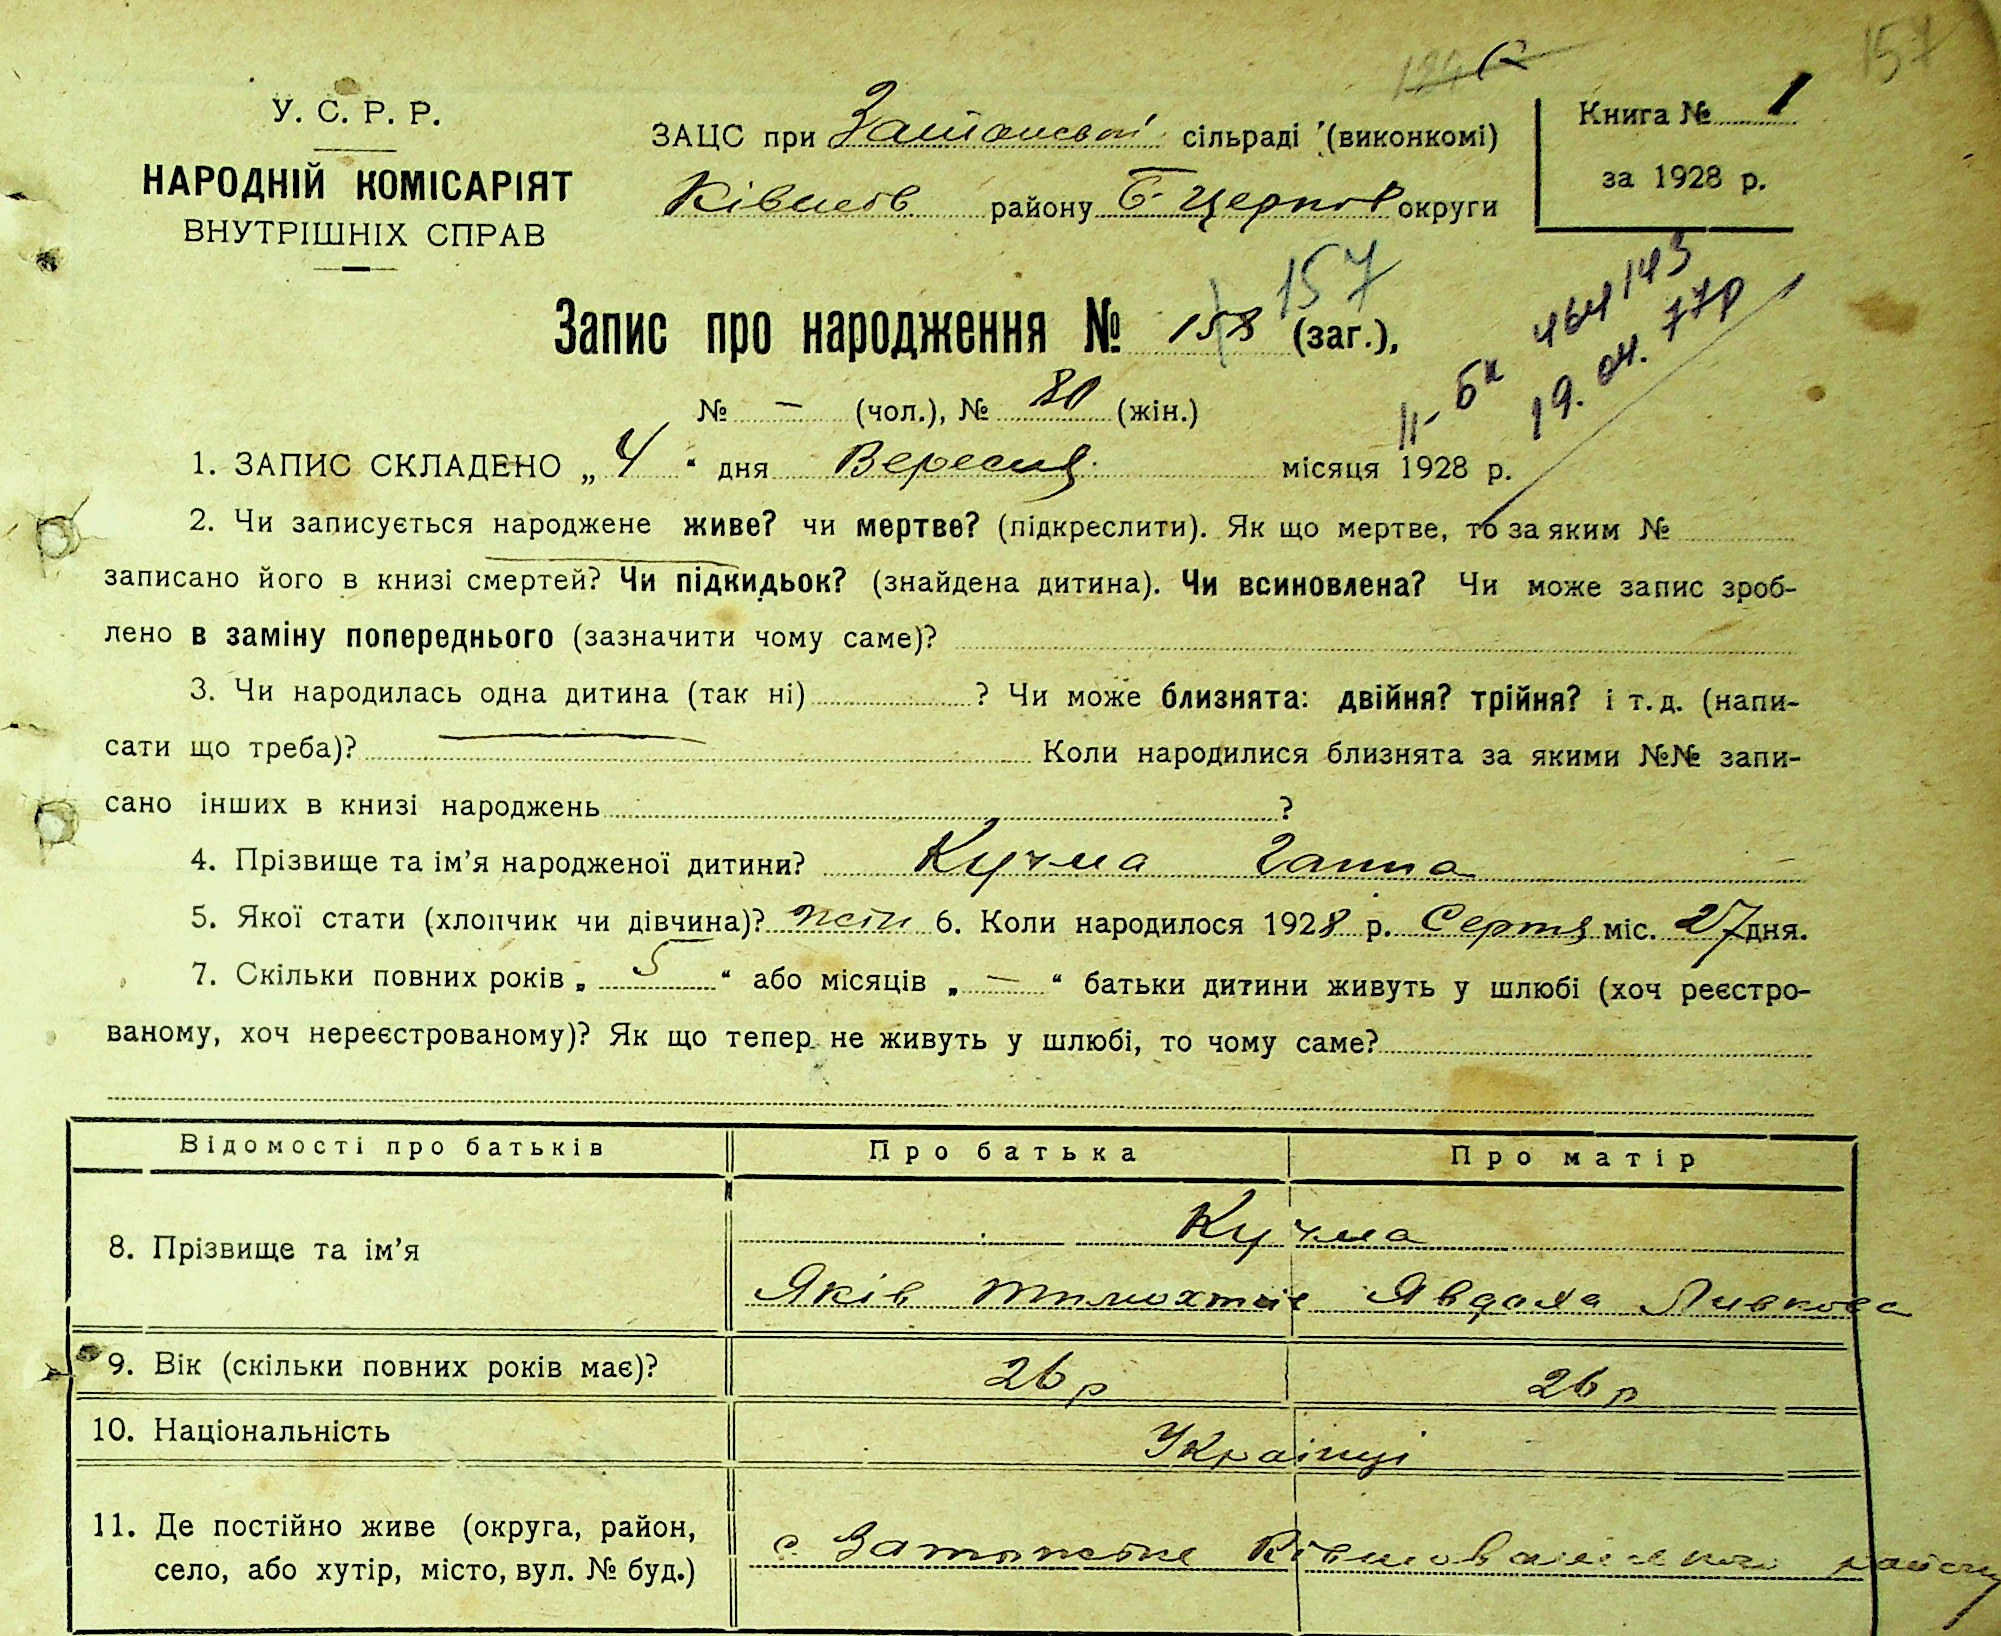 157
У. С. Р. Р.
НАРОДНІЙ КОМІСАРІЯТ
ВНУТРІШНІХ СПРАВ
ЗАЦС при сільраді (виконкомі)
району Б-Церков округи
Книга № 1
за 1928 р.
157
Запис про народження № 158 (заг.),
№ — (чол.), № 80 (жін.)
464143
11-БК 19. 04. 77р
1. ЗАПИС СКЛАДЕНО „ 4 “ дня Вересня місяця 1928 р.
2. Чи записується народжене живе? чи мертве? (підкреслити). Як що мертве, то за яким №
записано його в книзі смертей? Чи підкидьок? (знайдена дитина). Чи всиновлена? Чи може запис зроб-
лено в заміну попереднього (зазначити чому саме)?
3. Чи народилась одна дитина (так ні) ? Чи може близнята: двійня? трійня? і т. д. (напи-
сати що треба)? Коли народилися близнята за якими №№ запи-
сано інших в книзі народжень ?
4. Прізвище та ім’я народженої дитини? Кучма Ганна
5. Якої стати (хлопчик чи дівчина)? жін 6. Коли народилося 1928 р. Серпня міс. 27 дня.
7. Скільки повних років „ 5 “ або місяців „ — “ батьки дитини живуть у шлюбі (хоч реєстро-
ваному, хоч нереєстрованому)? Як що тепер не живуть у шлюбі, то чому саме?
Відомості про батьків Про батька Про матір
8. Прізвище та ім’я Кучма
Яків Явдоха
9. Вік (скільки повних років має)? 26 р 26 р
10. Національність Українці
11. Де постійно живе (округа, район,
село, або хутір, місто, вул. № буд.) с. району